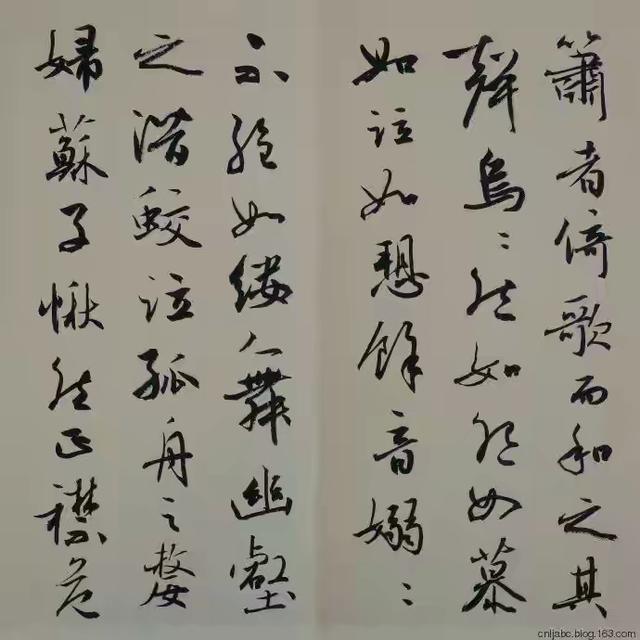 簫者倚歌而和之其
聲烏〻然如怨如慕
如泣如愬餘音嫋〻
不絕如縷舞幽壑
之潛蛟泣孤舟之嫠
婦蘇子愀然正襟危
cnljabc.blog.163.com